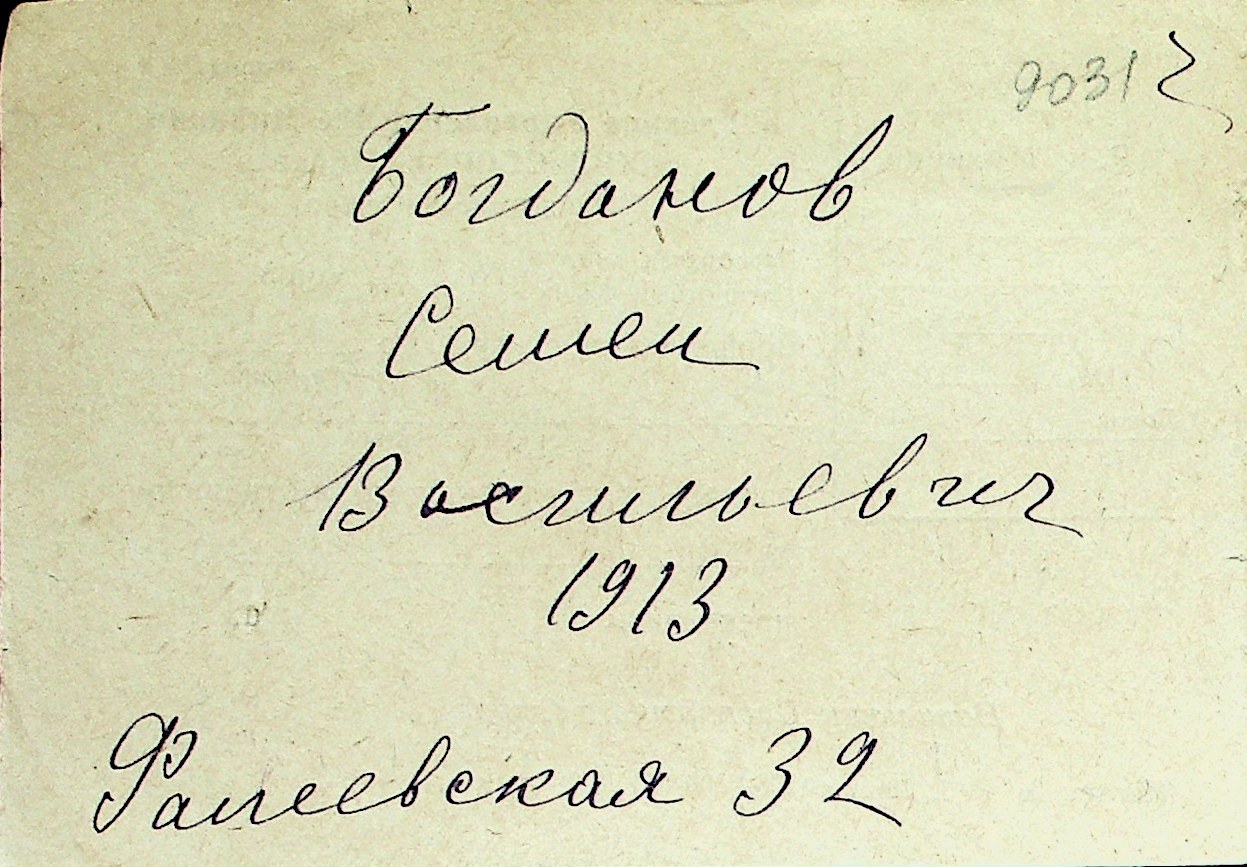 9031
Богданов
Семен
Васильевич
1913
Фалеевская 32